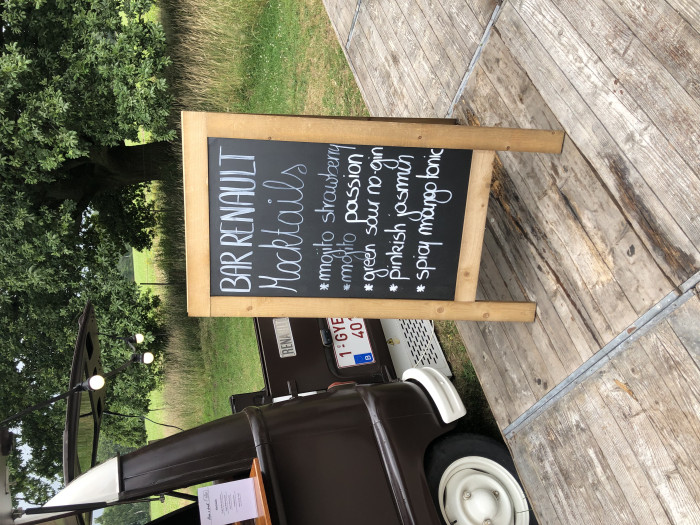 BAR RENAULT
Mocktails
* mojito strawberry
* mojito passion
* green sour no-gin
* pinkish jasmin
* spicy mango tonic
RENAULT
1-GYE
401
B